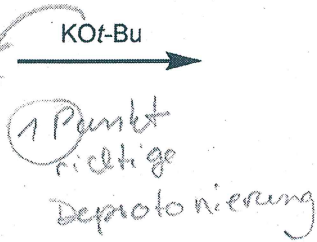 KOt-Bu
1 Punkt
richtige
Deprotonierung